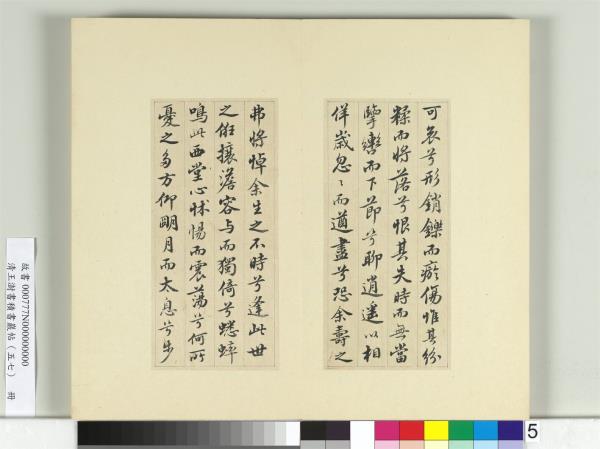 可哀兮形銷鑠而瘀傷惟其紛
糅而將落兮恨其失時而無當
擥轡而下節兮聊逍遙以相
佯歲忽〻而遒盡兮恐余壽之
弗將悼余生之不時兮逢此世
之俇攘澹容與而獨倚兮蟋蟀
鳴此西堂心怵惕而震蕩兮何所
憂之多方仰朙月而太息兮步
故書 000777N000000000
清王澍書積書巖帖(五七) 冊
5